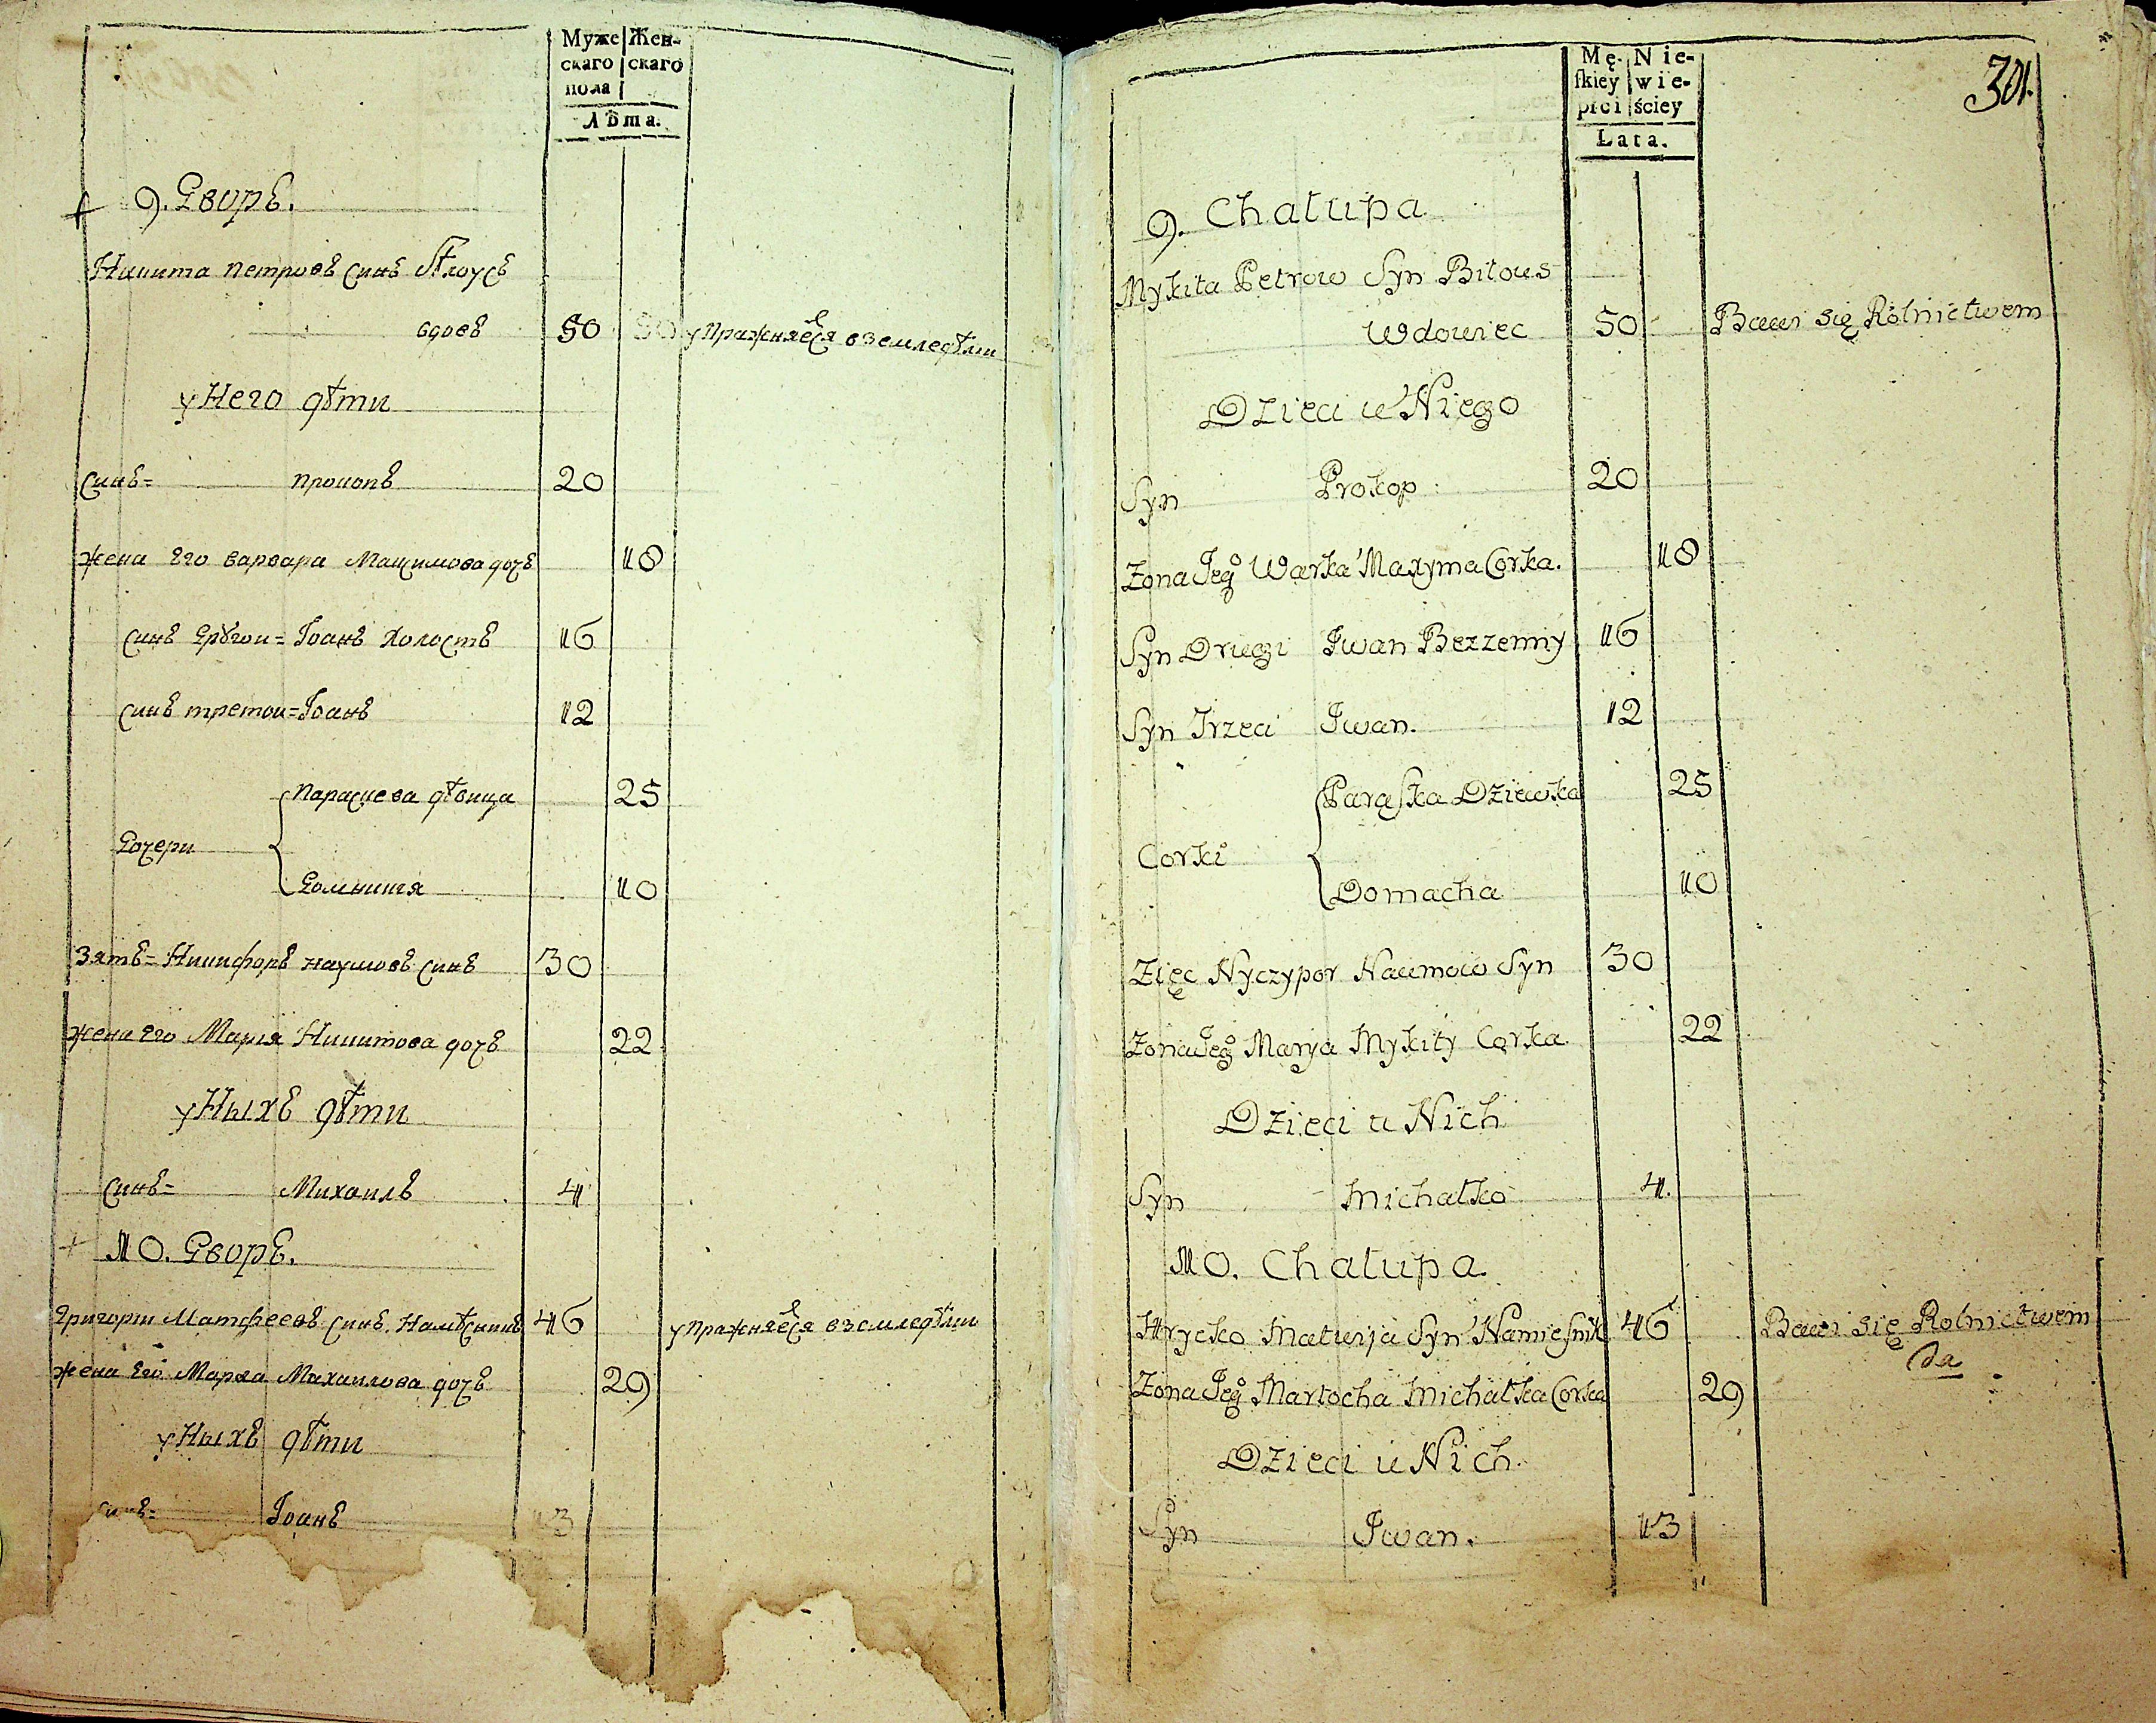 Муже Жен-
скаго скаго
пола
Лѣта.
9. Дворъ.
Никита петровъ синъ Бѣлоусъ
вдовъ 50 упражняется в земледѣлии
у Него дѣти
синъ= прокопъ 20
жена Его варвара Маѯимова дочъ 18
синъ Другои= Іоанъ холостъ 16
синъ третои= Іоанъ 12
Дочери
параскева дѣвица 25
Домникия 10
зятъ= Никифоръ наумовъ синъ 30
жена Его Мария Никитова дочъ 22
у Ныхъ дѣти
синъ= Михаилъ 4
10. Дворъ.
Григори Матфеевъ синъ Намѣсникъ 46 упражняется в земледѣлии
жена Его Марѳа Михаилова дочъ 29
у Ныхъ дѣти
синъ= Іоанъ 13
Mę- Nie-
ſkiey wie-
płci ściey
Lata.
301.
9. Chałupa
Mykita Petrow Syn Biłous
Wdowiec 50 Bawi się Rolnictwem
Dzieci u Niego
Syn Prokop 20
Zona Jegº Warka Maxyma Corka. 18
Syn Drugi Iwan Bezzenny 16
Syn Trzeci Iwan. 12
Corki
Paraſka Dziewka 25
Domacha 10
Zięc Nyczypor Naumow Syn 30
Zona Jegº Marya Mykity Corka 22
Dzieci u Nich
Syn Michałko 4.
10. Chałupa.
Hrycko Matwija Syn Namieſnik 46 Bawi się Rolnictwem
Zona Jegº Martocha Michałka Corka 29
Dzieci u Nich.
Syn Iwan. 13